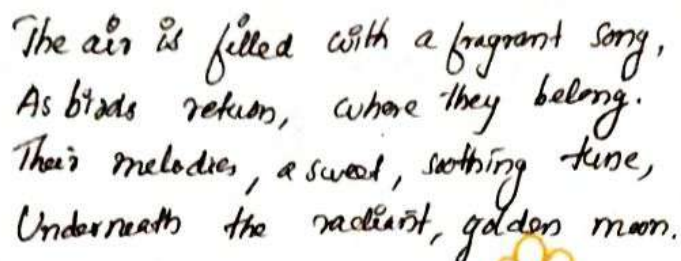 The air is filled with a fragrant song,
As birds return, where they belong.
Their melodies, a sweet, soothing tune,
Underneath the radiant, golden moon.